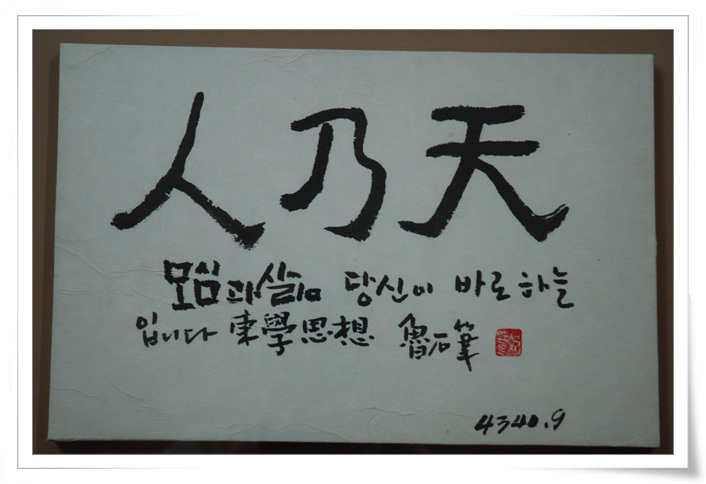 人乃天
모심과 살림 당신이 바로 하늘
입니다 東學思想 魯石筆
4340.9